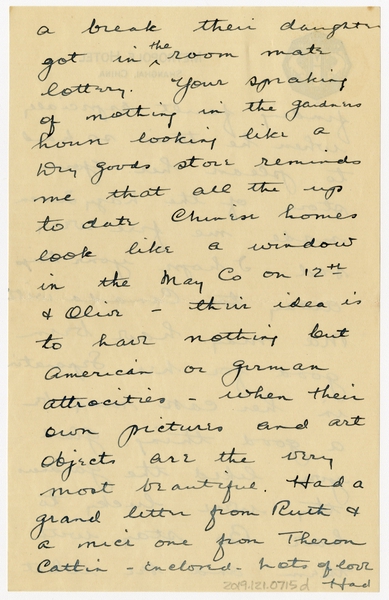 a break their daughter
got in the room mate
lottery. Your speaking
of nothing in the gardners
house looking like a
Dry goods store reminds
me that all the up
to date Chinese homes
look like a window
in the May Co on 12th
& Olive - their idea is
to have nothing but
American or German
attrocities - when their
own pictures and art
objects are the very
most beautiful. Had a
grand letter from Ruth &
a nice one from Theron
Catlin - enclosed. Lots of love
Had
2019.121.0715d